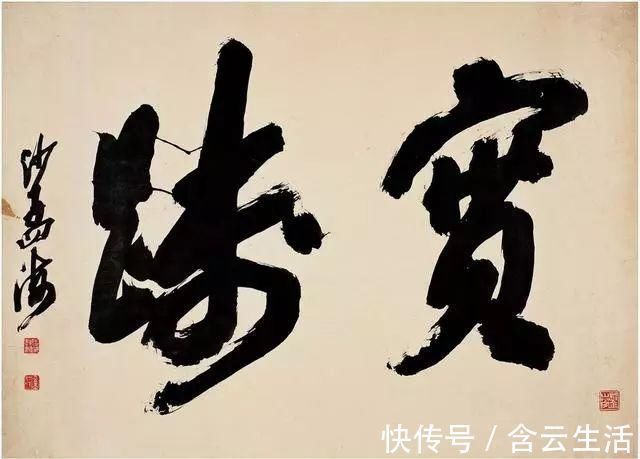 實踐
沙孟海
快传号／含云生活